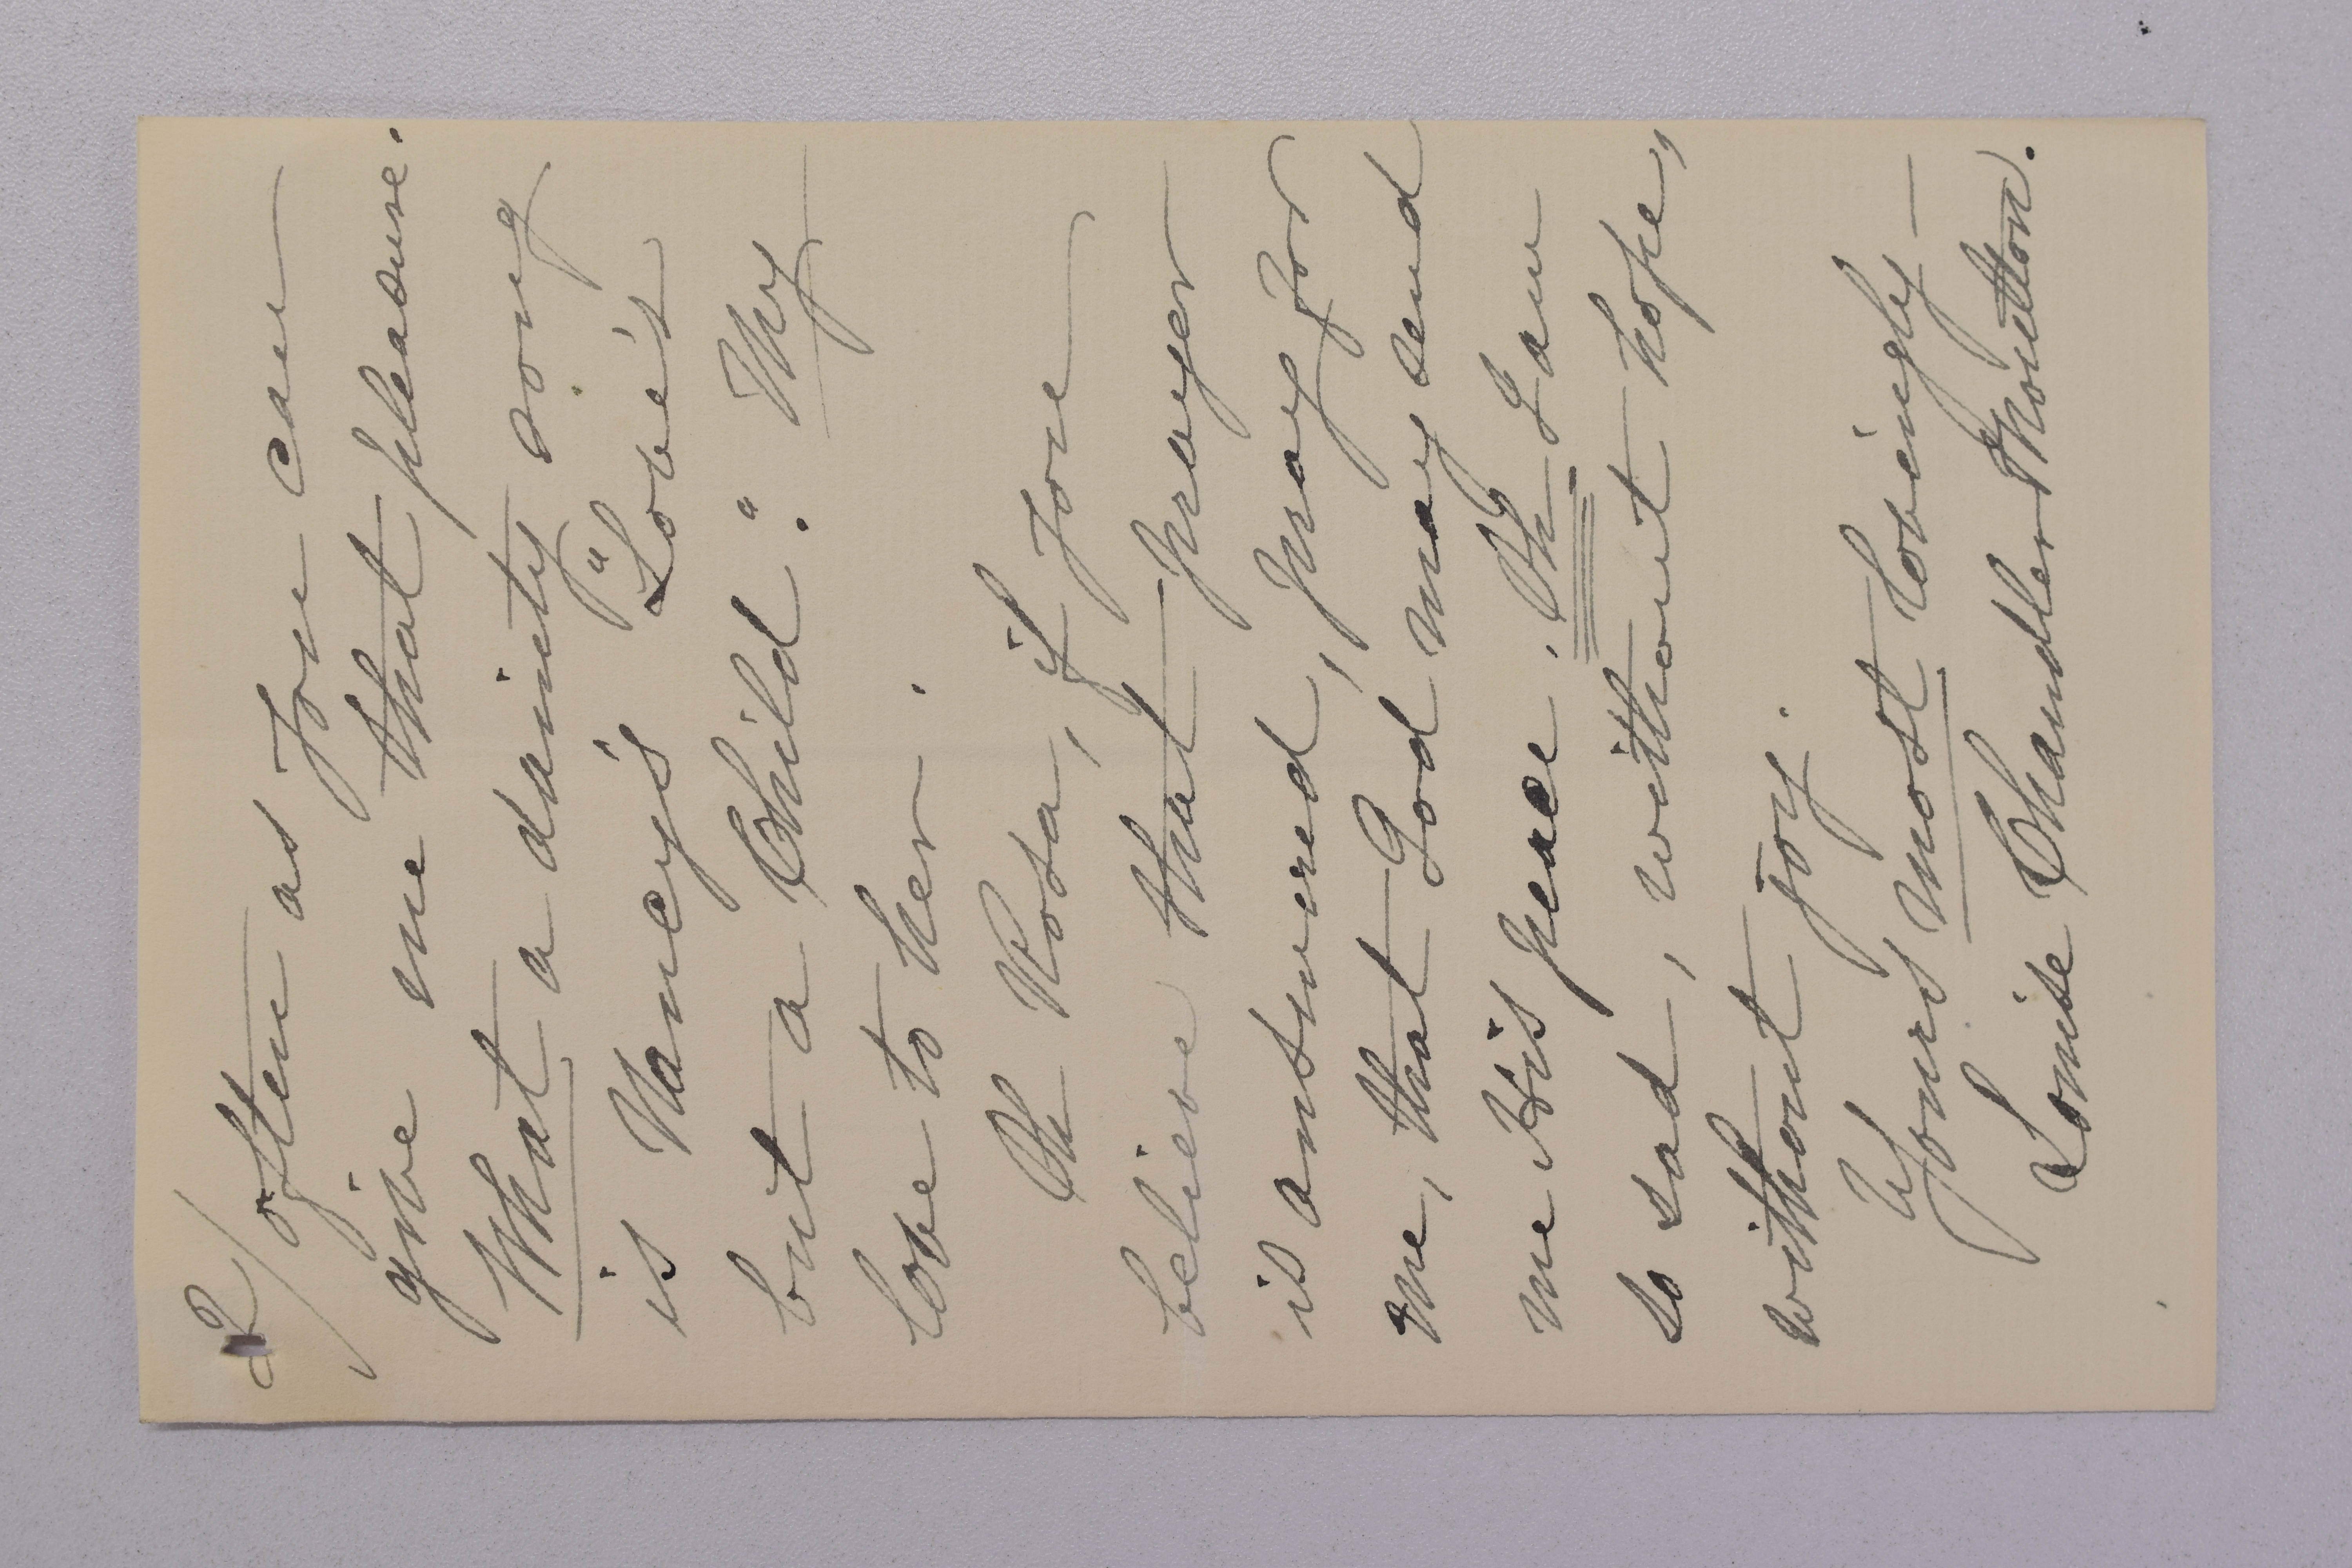 2/
often as you can
give me that pleasure.
What a dainty song
is Nancy's "Love's
but a Child." My
love to her.
Oh Rosa, if you
believe that prayer
is answered, pray for
me, that God may send
me His peace. Oh I am
so sad, without hope,
without joy.
Yours most lovingly —
Louise Chandler Moulton.